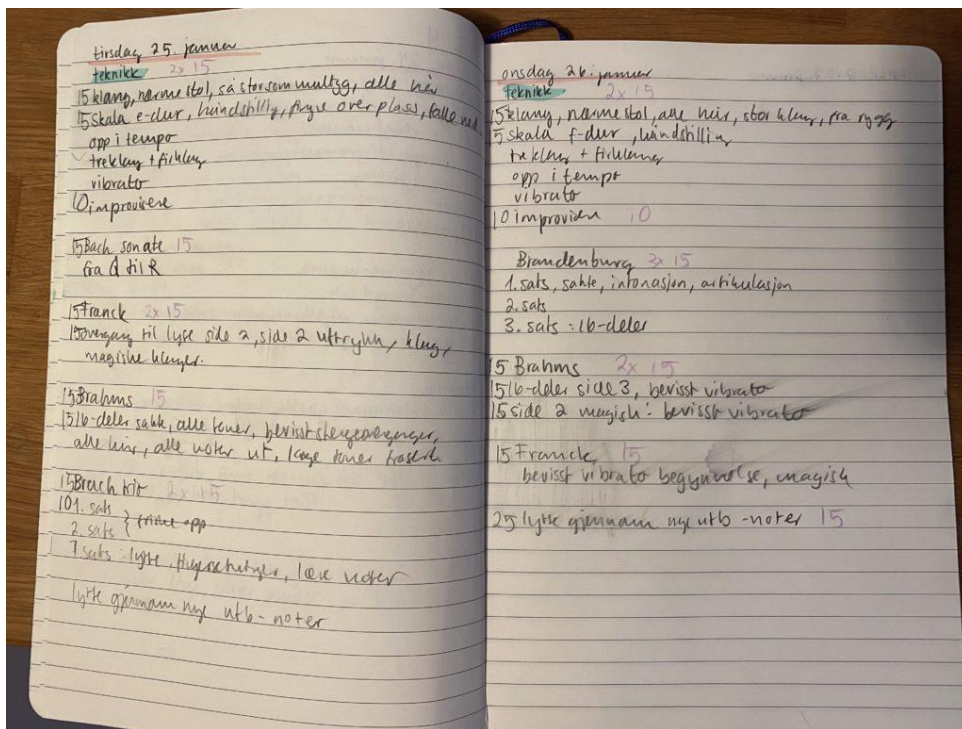 tirsdag 25. januar
teknikk 2x 15
15 klang, nærme stol, så stor som mulig, alle hår
15 skala e-dur, håndstilling, fingre over plass, falle ned
opp i tempo
treklang + firklang
vibrato
10 improvisere
15 Bach sonate 15
fra Q til R
15 Franck 2x 15
15 overgang til lyse side 2, side 2 uttrykk, klang,
magiske klanger.
15 Brahms 15
15 16-deler sakte, alle toner, bevisst
alle hår, alle noter ut, lange toner
15 Bruch trio 2x 15
10 1. sats
2. sats } friske opp
7. sats : lytte, lære noter
lytte gjennom nye utb-noter
onsdag 26. januar
teknikk 2x 15
15 klang, nærme stol, alle hår, stor klang, fra rygg
15 skala f-dur, håndstilling
treklang + firklang
opp i tempo
vibrato
10 improvisere 10
Brandenburg 3x 15
1. sats, sakte, intonasjon, artikulasjon
2. sats
3. sats : 16-deler
15 Brahms 2x 15
15 16-deler side 3, bevisst vibrato
15 side 2 magisk: bevisst vibrato
15 Franck 15
bevisst vibrato begynnelse, magisk
25 lytte gjennom nye utb-noter 15